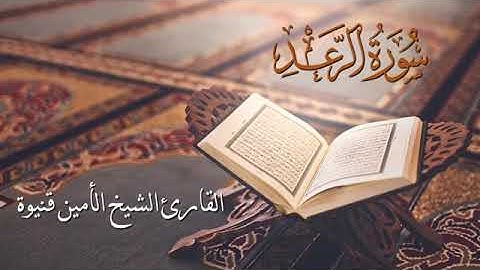 سُورَةُ الرَّعْدِ
القارئ الشيخ الأمين قنيوة